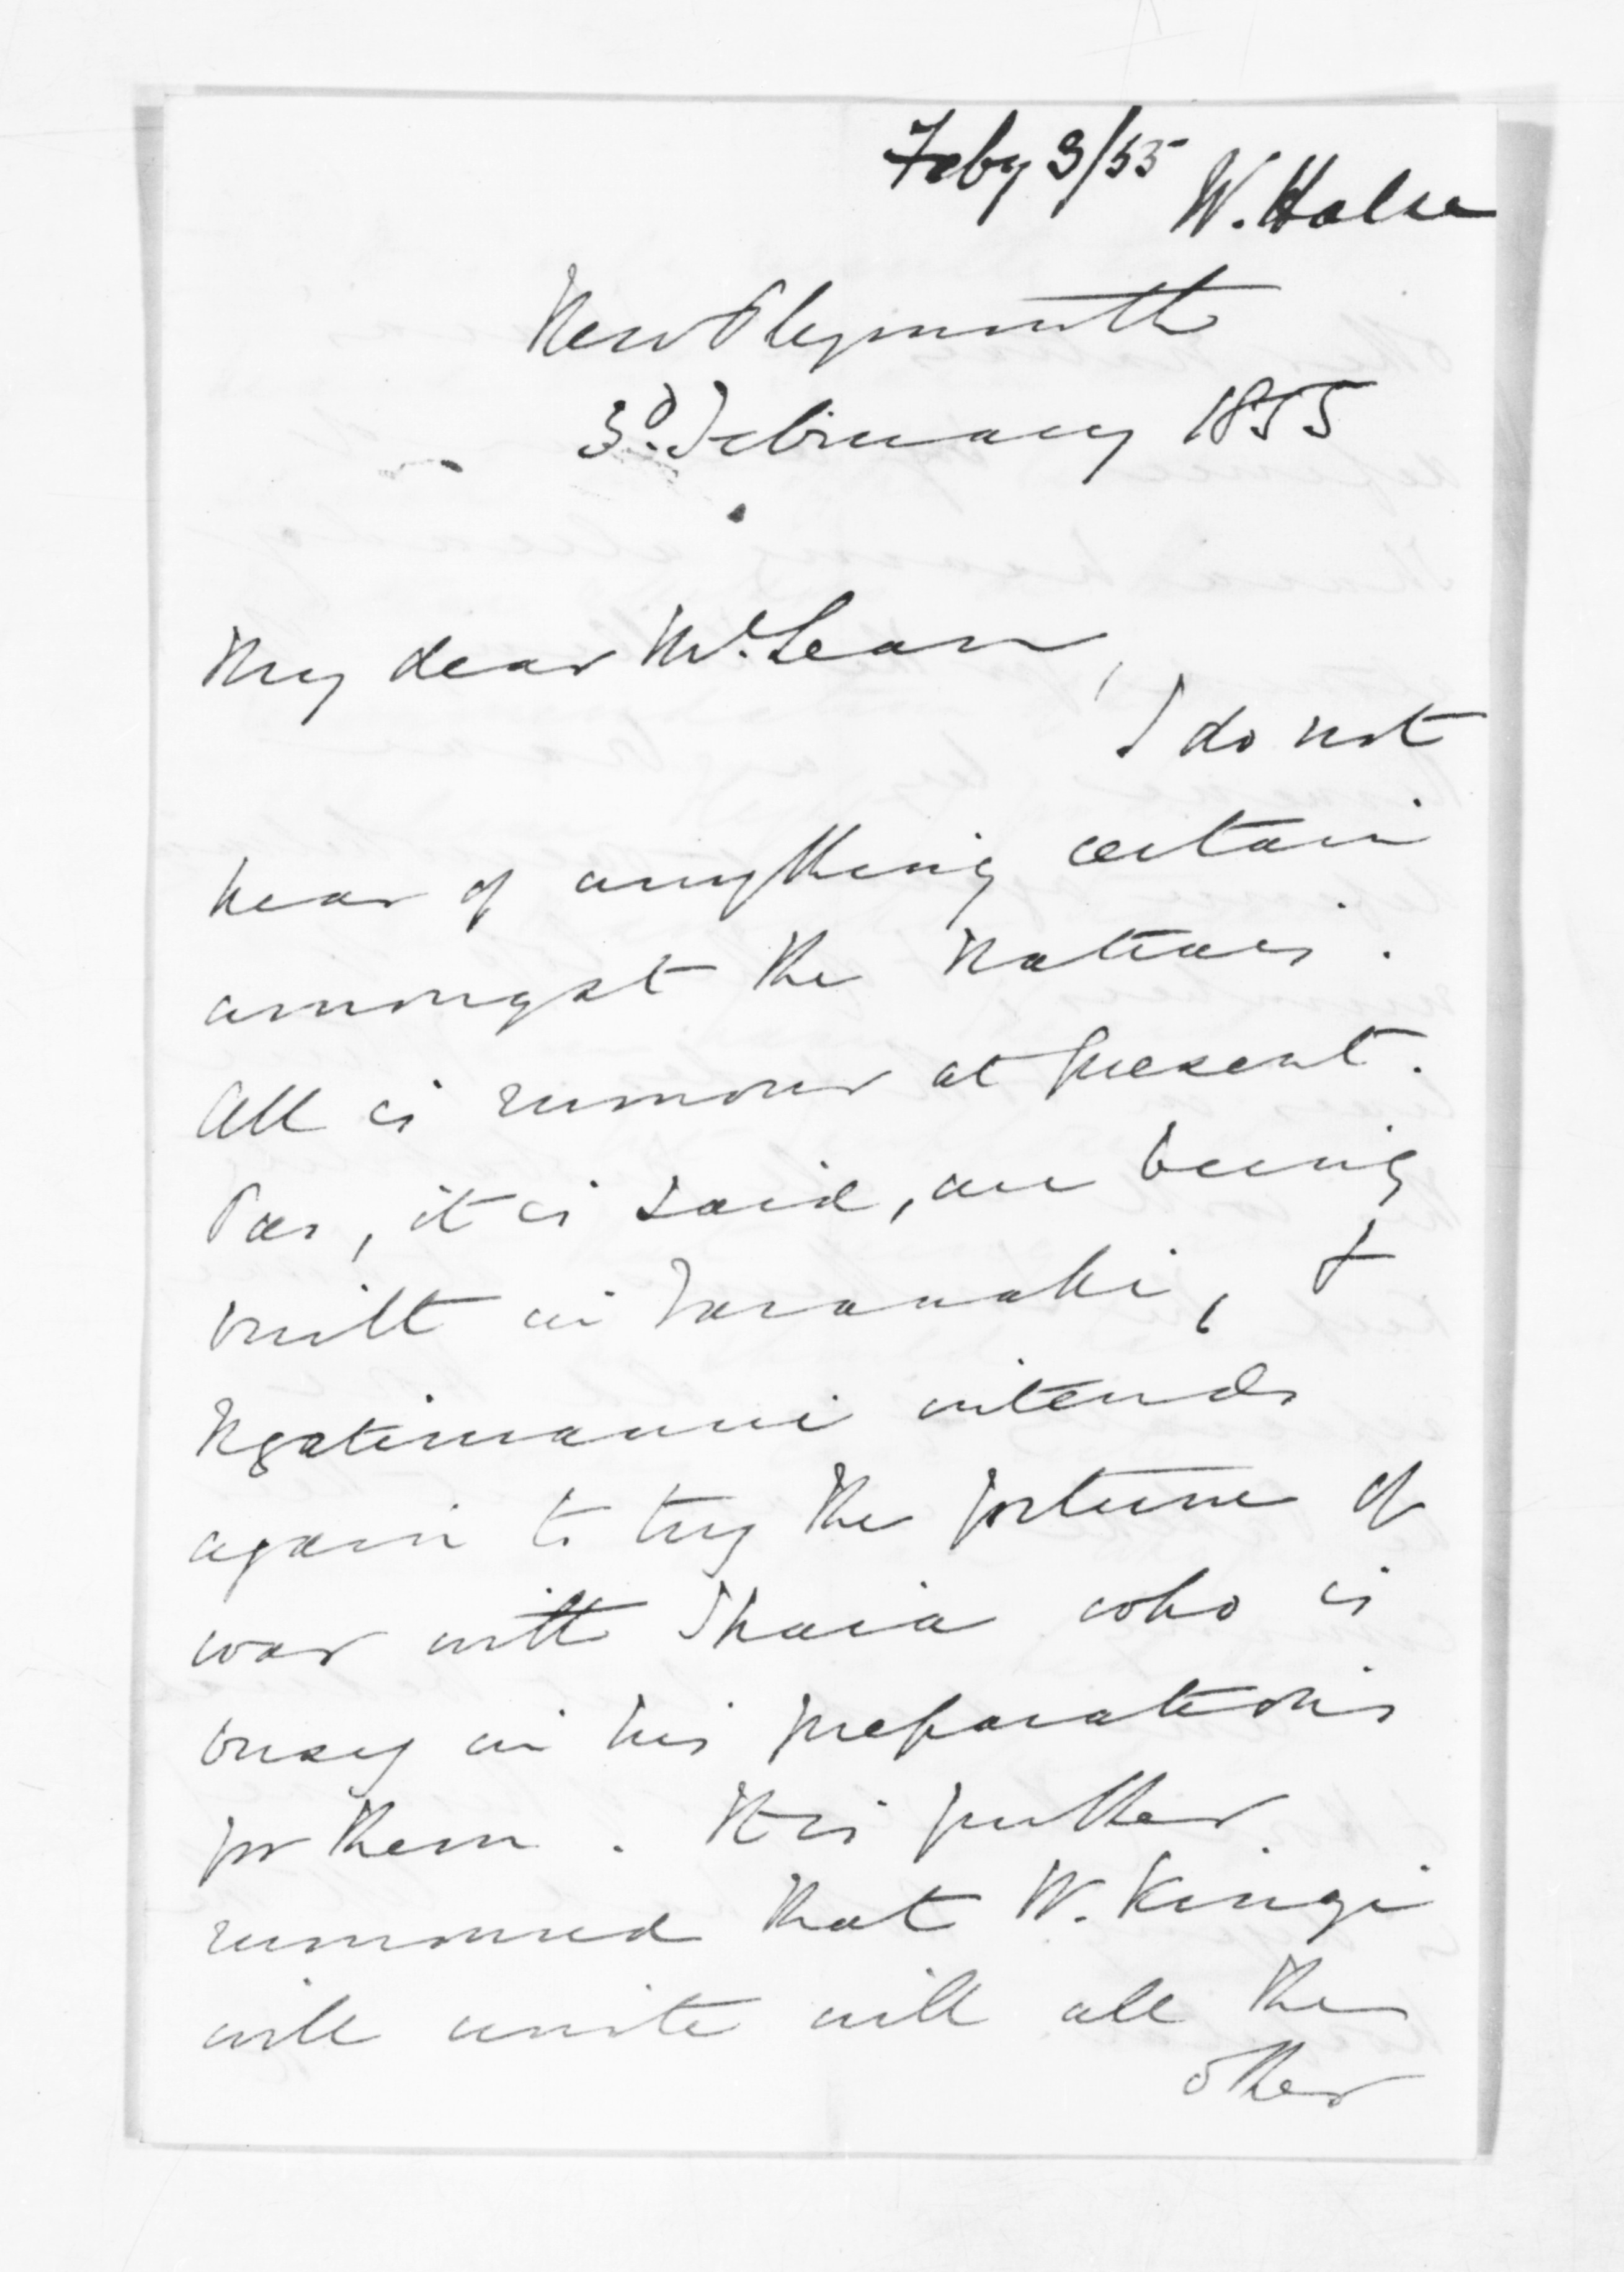 Feby 3/55
W. Halse
New Plymouth
3d. February 1855
My dear McLean,
I do not
hear of anything certain
amongst the Natives.
All is rumour at present.
Pas, it is said, are being
built in Taranaki, &
Ngatimaniu intends
again to try the fortune of
war with Ihaia who is
busy in his preparations
for them. It is further
rumoured that W. Kingi
will unite will all the
other